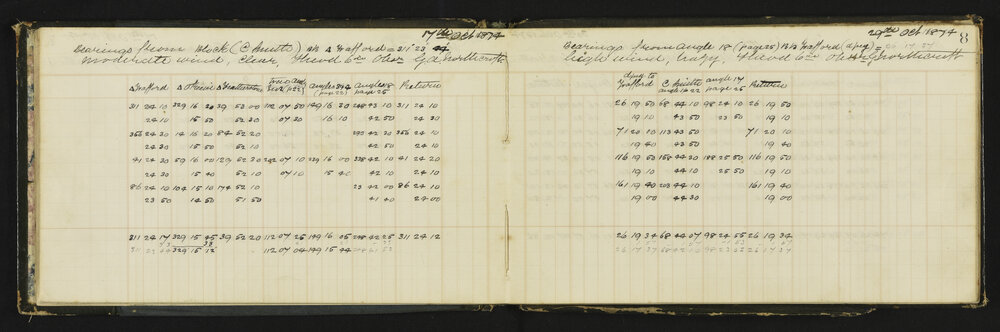 17th Oct 1874
Bearings from Block (C Austs) Δ Trafford = 311° 23'
moderate wind, Clear, Theod 6in Obsr G A Northcroft
Δ Trafford Δ Δ and (p22) angle (page 22) angle 18 page 25 Return
31 24 10 329 16 20 39 50 00 112 07 50 149 16 30 248 43 10 31 24 10
24 10 15 50 52 30 07 30 16 10 42 50 24 30
356 24 30 14 16 20 84 52 20 290 42 30 356 24 10
24 30 15 50 52 10 42 50 24 10
41 24 30 59 16 00 129 52 30 202 07 10 239 16 00 338 42 10 41 24 20
24 30 15 40 52 10 07 10 15 40 42 10 24 10
86 24 10 104 15 10 174 52 10 23 42 00 86 24 10
23 50 14 50 51 50 41 40 24 00
311 24 17 329 15 45 39 52 20 112 07 25 149 16 05 248 42 25 311 24 12
329 15 12 112 07 04 149 15 44
29th Oct 1874
8
Bearings from angle 18 (page 25) Trafford
light wind, hazy, Theod 6in Obsr Northcroft
Trafford C Austs angle p 22 angle 17 page 25 Return
26 19 50 68 44 10 98 24 10 26 19 10
19 10 43 50 23 50 19 10
71 20 10 113 43 50 71 20 10
19 40 43 50 19 40
116 19 50 158 44 30 188 25 50 116 19 50
19 10 44 10 25 50 19 10
161 19 40 203 44 10 161 19 40
19 00 44 30 19 00
26 19 34 68 44 07 98 24 55 26 19 34